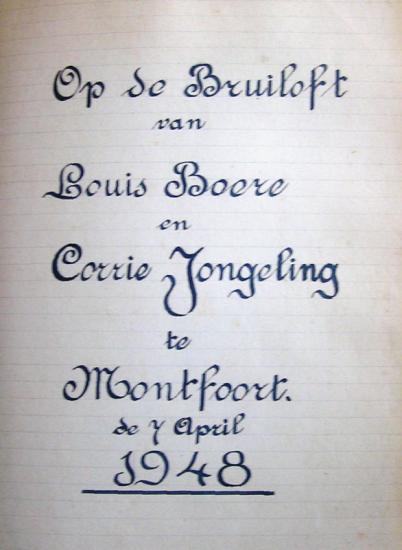 Op de Bruiloft
van
Louis Boere
en
Corrie Jongeling
te
Montfoort.
de 7 April
1948